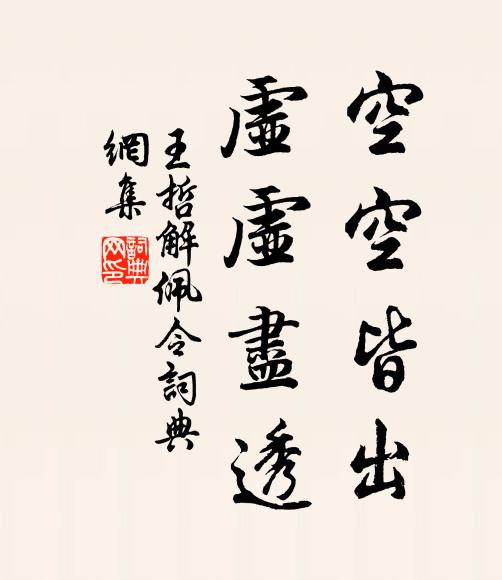 空空皆出
虛虛盡透
王哲解佩令詞典
網集
詞典
网印